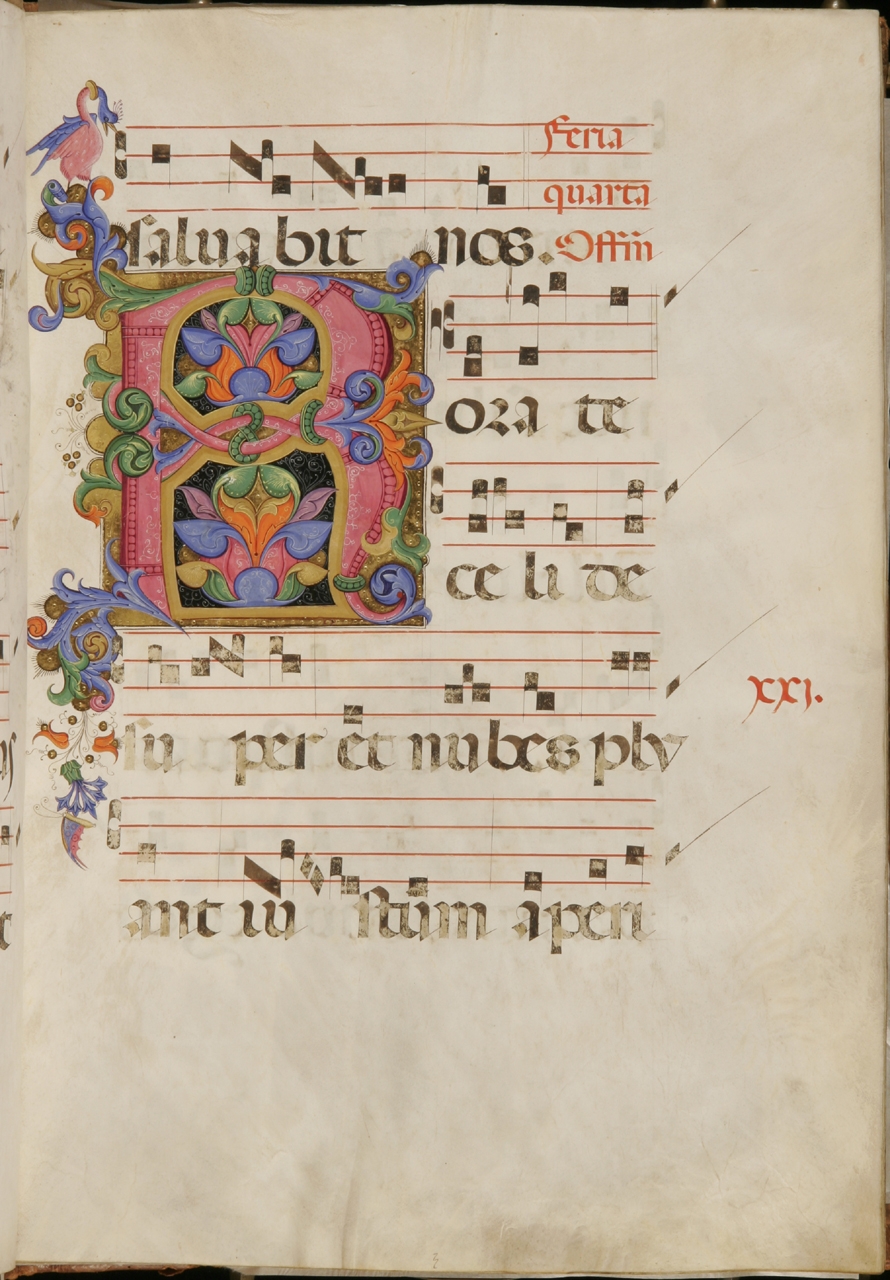 Feria
quarta
saluabit nos. Offin
R
orate
celi de
super et nubes plu
xxj.
ant iu stum aperi